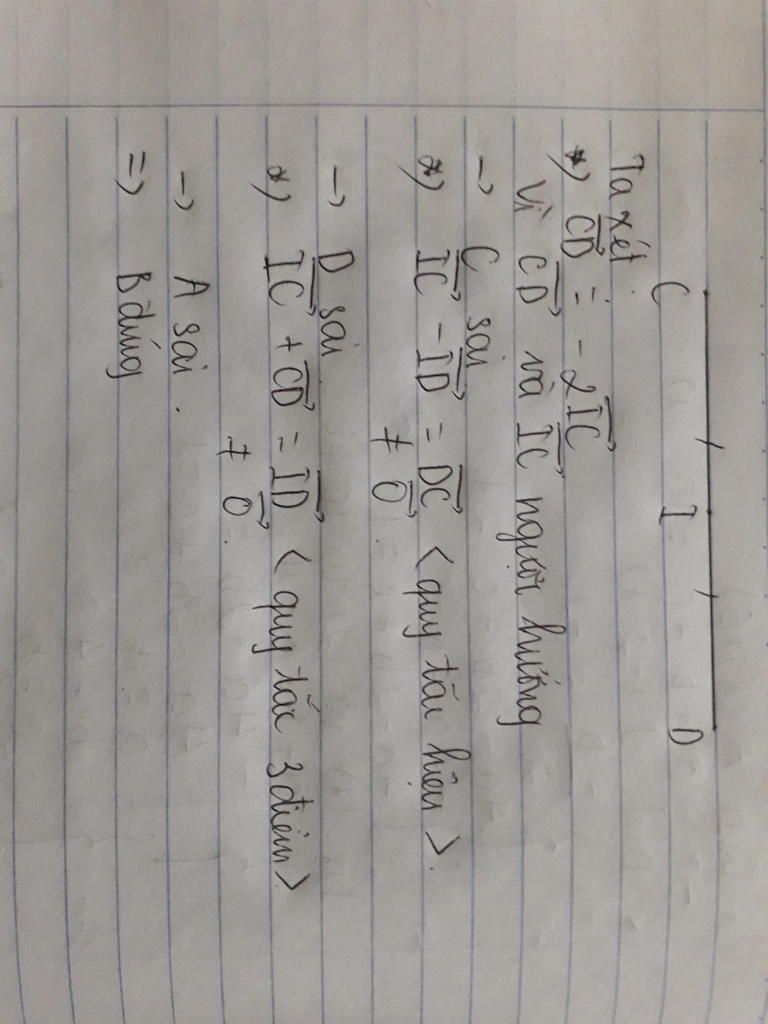 C I D
Ta xét.
*) $\overrightarrow{CD} = -2\overrightarrow{IC}$
Vì $\overrightarrow{CD}$ và $\overrightarrow{IC}$ ngược hướng
→ C sai
*) $\overrightarrow{IC} - \overrightarrow{ID} = \overrightarrow{DC}$ < quy tắc hiệu >.
≠ $\overrightarrow{0}$.
→ D sai
*) $\overrightarrow{IC} + \overrightarrow{CD} = \overrightarrow{ID}$ < quy tắc 3 điểm >
≠ $\overrightarrow{0}$.
→ A sai.
=> B đúng